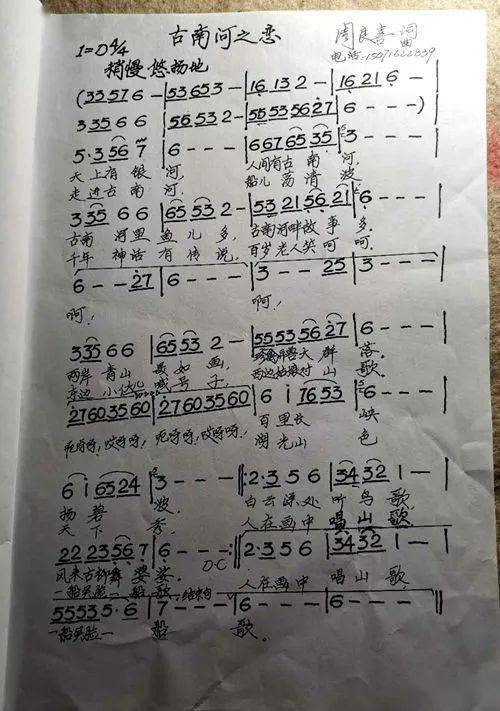 古南河之恋 周良喜 词曲
1=D 4/4 电话:15071622839
稍慢 悠扬地
(33576- | 53653- | 16 132- | 16216-
33566 | 55532- | 55535627 | 6---)
5·3567 | 6--- | 6676535 | 3---
天上有银河, 人间有古南河,
走进古南河, 船儿荡清波
33566 | 65532- | 53215621 | 6---
古南河里鱼儿多, 古南河畔故事多,
千年神话有传说, 百岁老人笑呵呵,
6--27 | 6--- | 3--25 | 3---
啊! 啊!
33566 | 65532- | 55535627 | 6---
两岸青山美如画, 大群落。
喊号子, 两边姑娘对山歌
27603560 | 27603560 | 6i7653 | 6---
百里长峡
湖光山色
6i6524 | 3--- ‖: 2·356 | 34321-
扬碧波 白云深处听鸟歌,
天下秀, 人在画中唱山歌,
2223567 | 6--- :‖ 2·356 | 34321- |
D·C
风来古柳舞婆娑, 人在画中唱山歌,
一船笑脸一船歌, 结束句
55535·6 | 7--- | 6--- | 6--- ‖
一船笑脸一船歌。